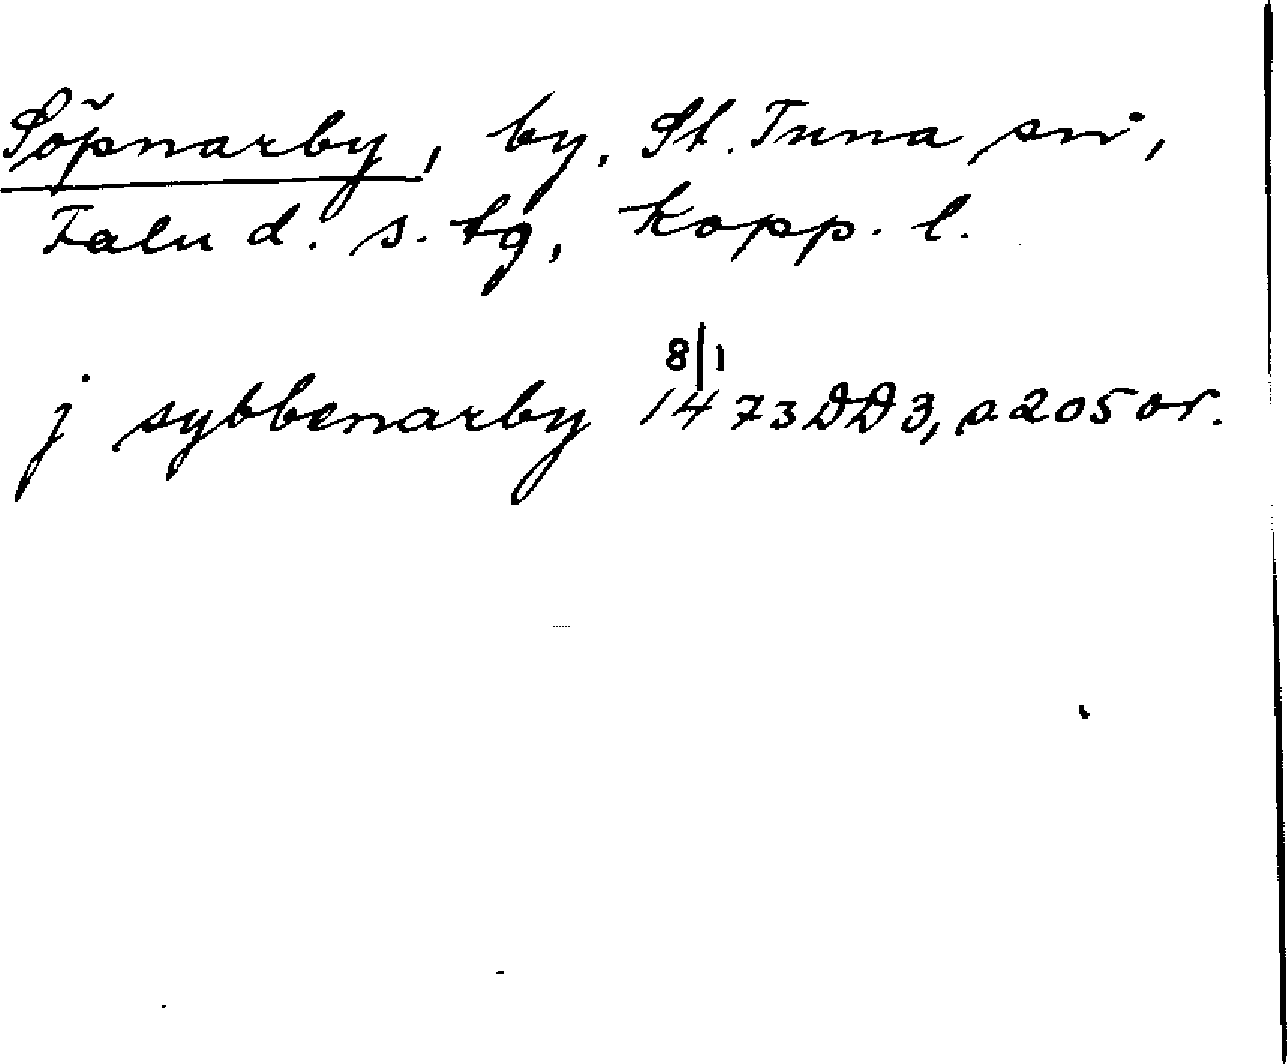 Söpnarby, by, St. Tuna sn,
Falu d. s. tg, Kopp. l.
j sybbenarby 8/1 1473 DD3, s 205 or.